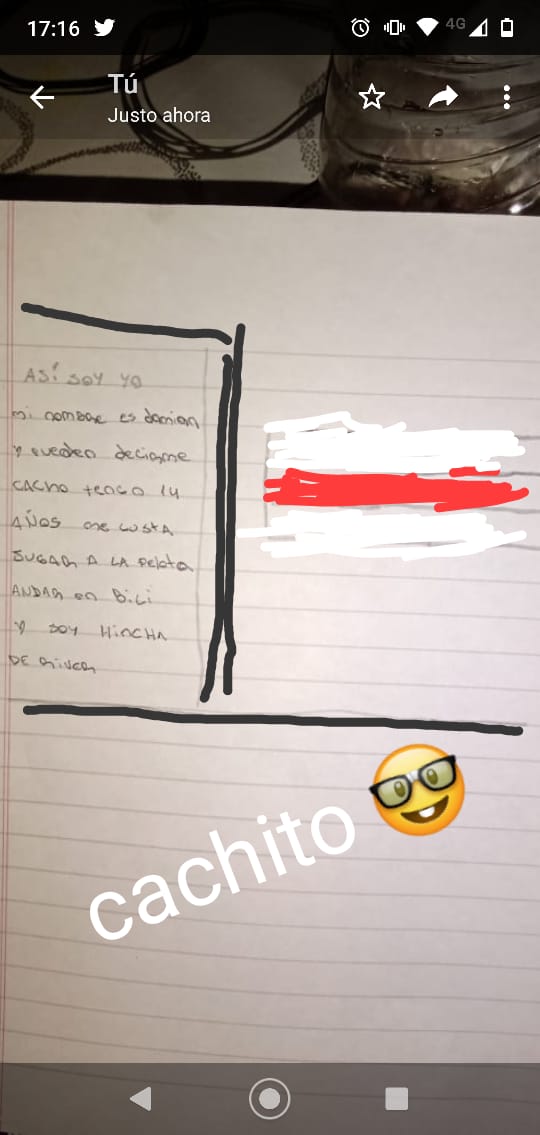 17:16
4G
Tú
Justo ahora
ASÍ SOY YO
mi nombre es damian
y pueden decirme
CACHO tengo 14
AÑOS me gusta
JUGAR A LA Pelota
ANDAR en Bici
y soy HincHA
DE River
cachito